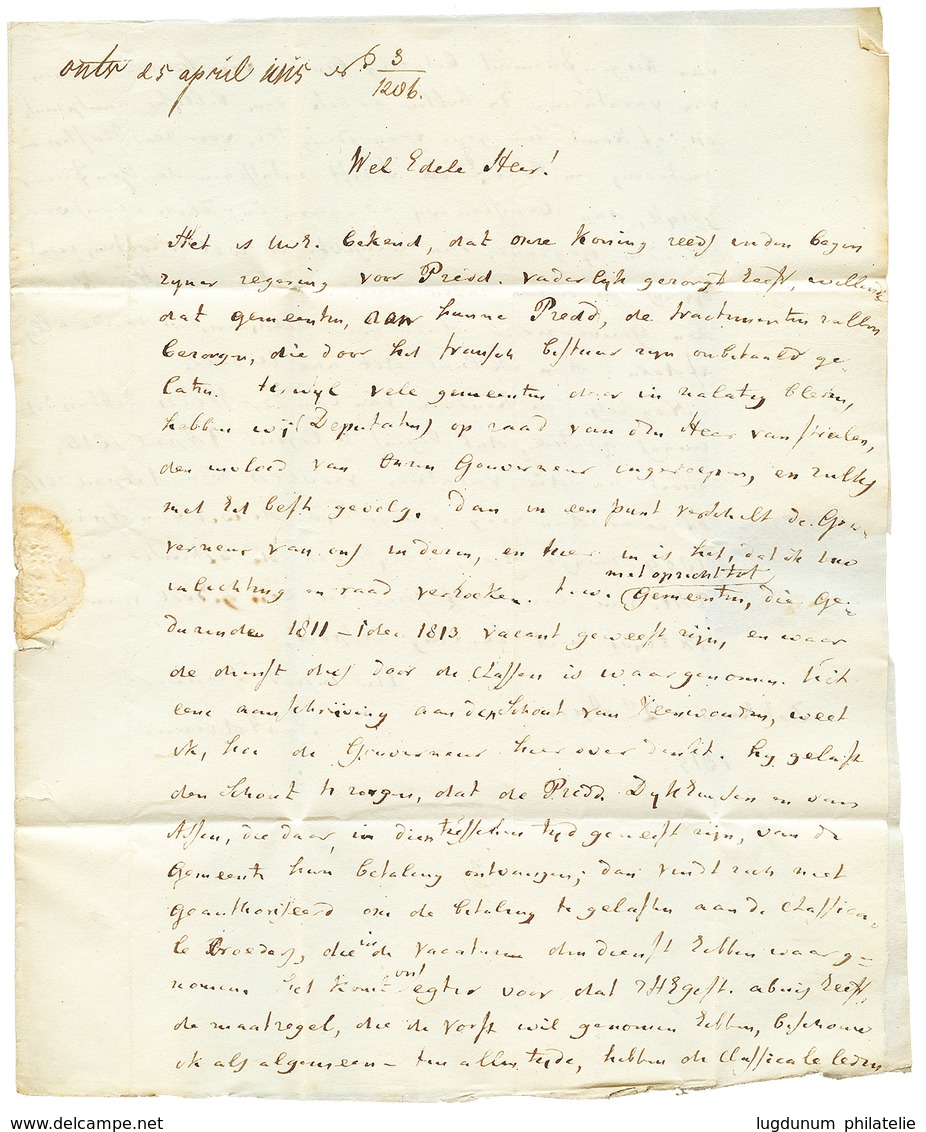 ontv 25 april 1815 No 3/1206.
Wel Edele Heer!
Het is UwE. bekend, dat onze Koning reeds in den begin
zyner regering voor Predd. vaderlijk gezorgt heeft, willende
dat gemeenten, aan hunne Predd, de tractementen zullen
bezorgen, die door het fransch bestuur zyn onbetaald ge-
laten. terwyl vele gemeenten daar in nalatig bleven,
hebben wij (Deputaten) op raad van den Heer van
den invloed van Onzen Gouverneur ingeroepen, en zulks
met het beste gevolg. Dan in een punt verschilt de Gou-
verneur van ons in dezen, en hier in is het, dat ik uw
inlichting en raad verzoeken.
met opzicht tot
Gemeenten, die Ge-
durende 1811 – 1813 vacant geweest zijn, en waar
de dienst dus door de Classen is waargenomen. Uit
eene aanschrijving aan den Schout van Veenwouden, weet
ik, hoe de Gouverneur hier over denkt. hy gelast
den Schout te zorgen, dat de Predd. Dykhuisen en van
Assen, die daar, in dien tusschen tyd geweest zijn, van de
Gemeente hun betaling ontvangen; dan vindt zich niet
geauthoriseerd om de betaling te gelasten aan de Classica-
le Broeders, die in de vacaturen den dienst hebben waarge-
nomen. Het komt ons egter voor dat ZHEGest. abuis heeft,
de maatregel, die de vorst wil genomen hebben, beschouw
ik als algemeen – ten allen tyde, hebben de Classicale leden
lugdunum philatelie
www.delcampe.net